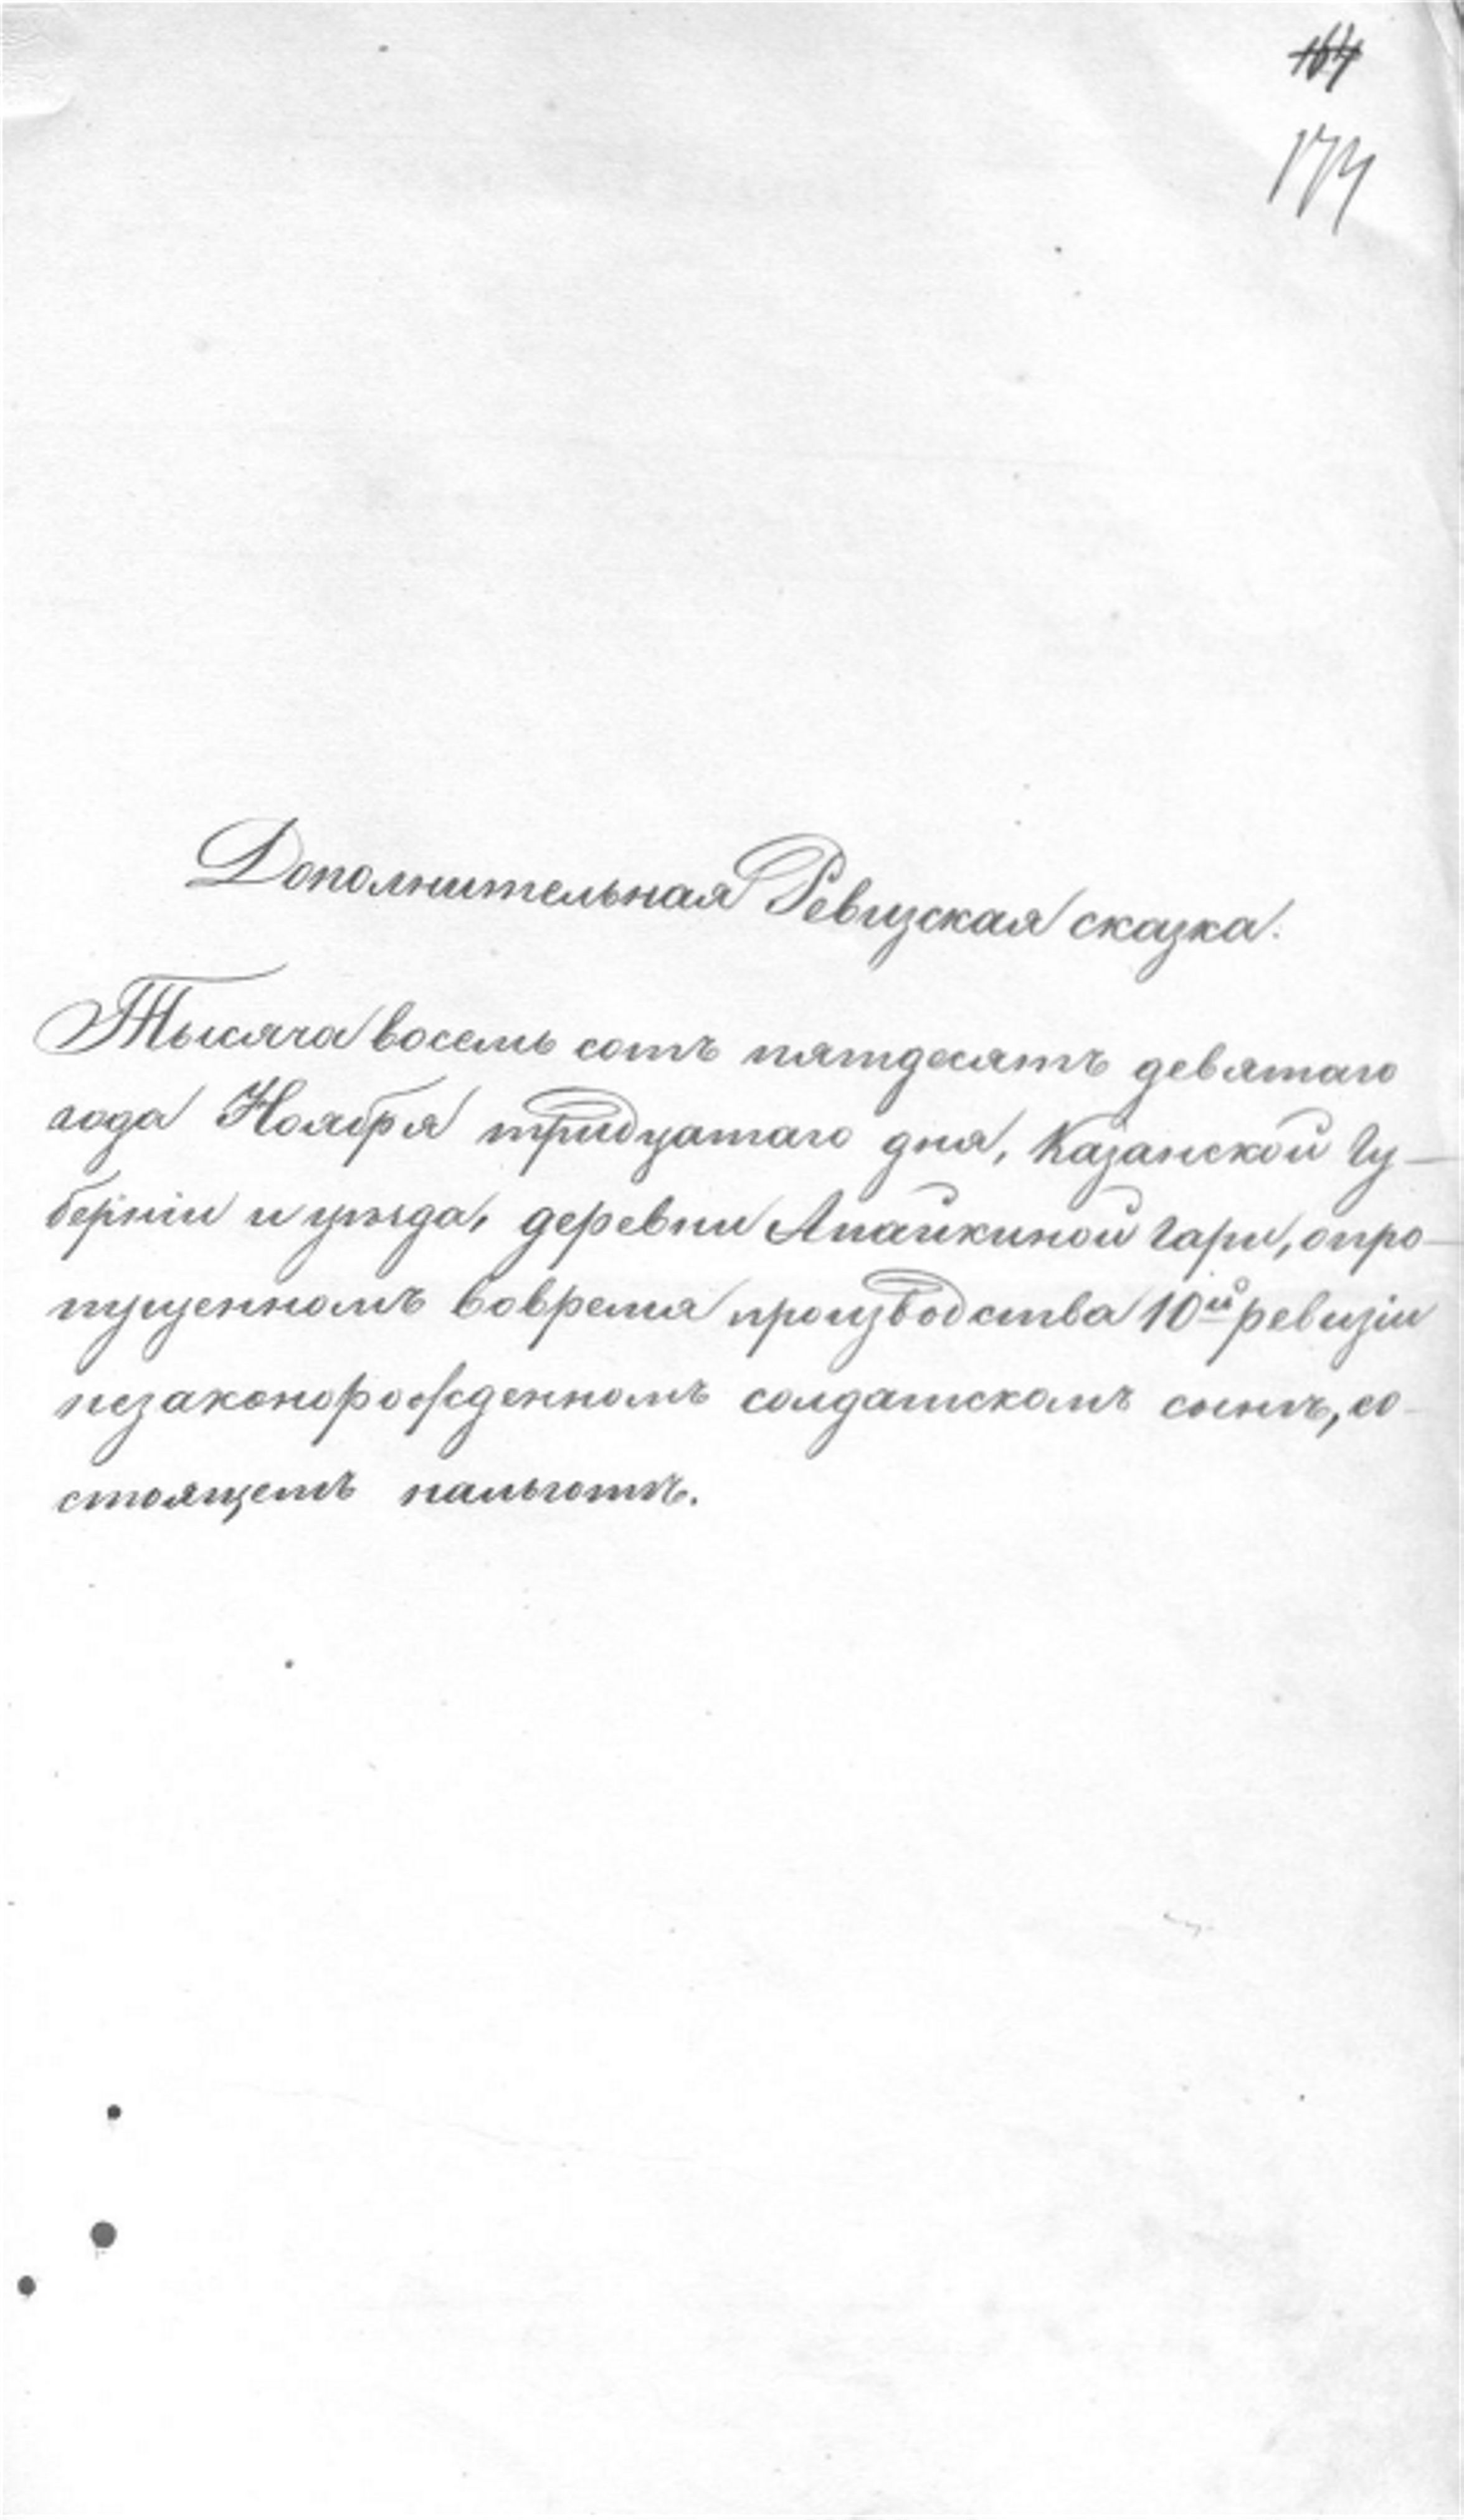 164
174
Дополнительная Ревизская сказка.
Тысяча восемь сотъ пятдесятъ девятаго
года Ноября тридцатаго дня, Казанской Гу-
берніи и уѣзда, деревни Апайкиной Гари, опро-
пущенномъ вовремя производства 10й ревизіи
незаконорожденномъ солдатскомъ сынѣ, со-
стоящемъ нальготѣ.